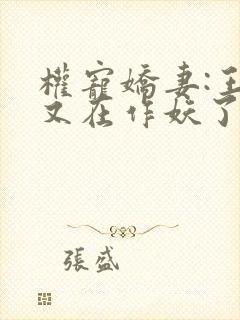 權寵嬌妻:王
又在作妖了
張盛